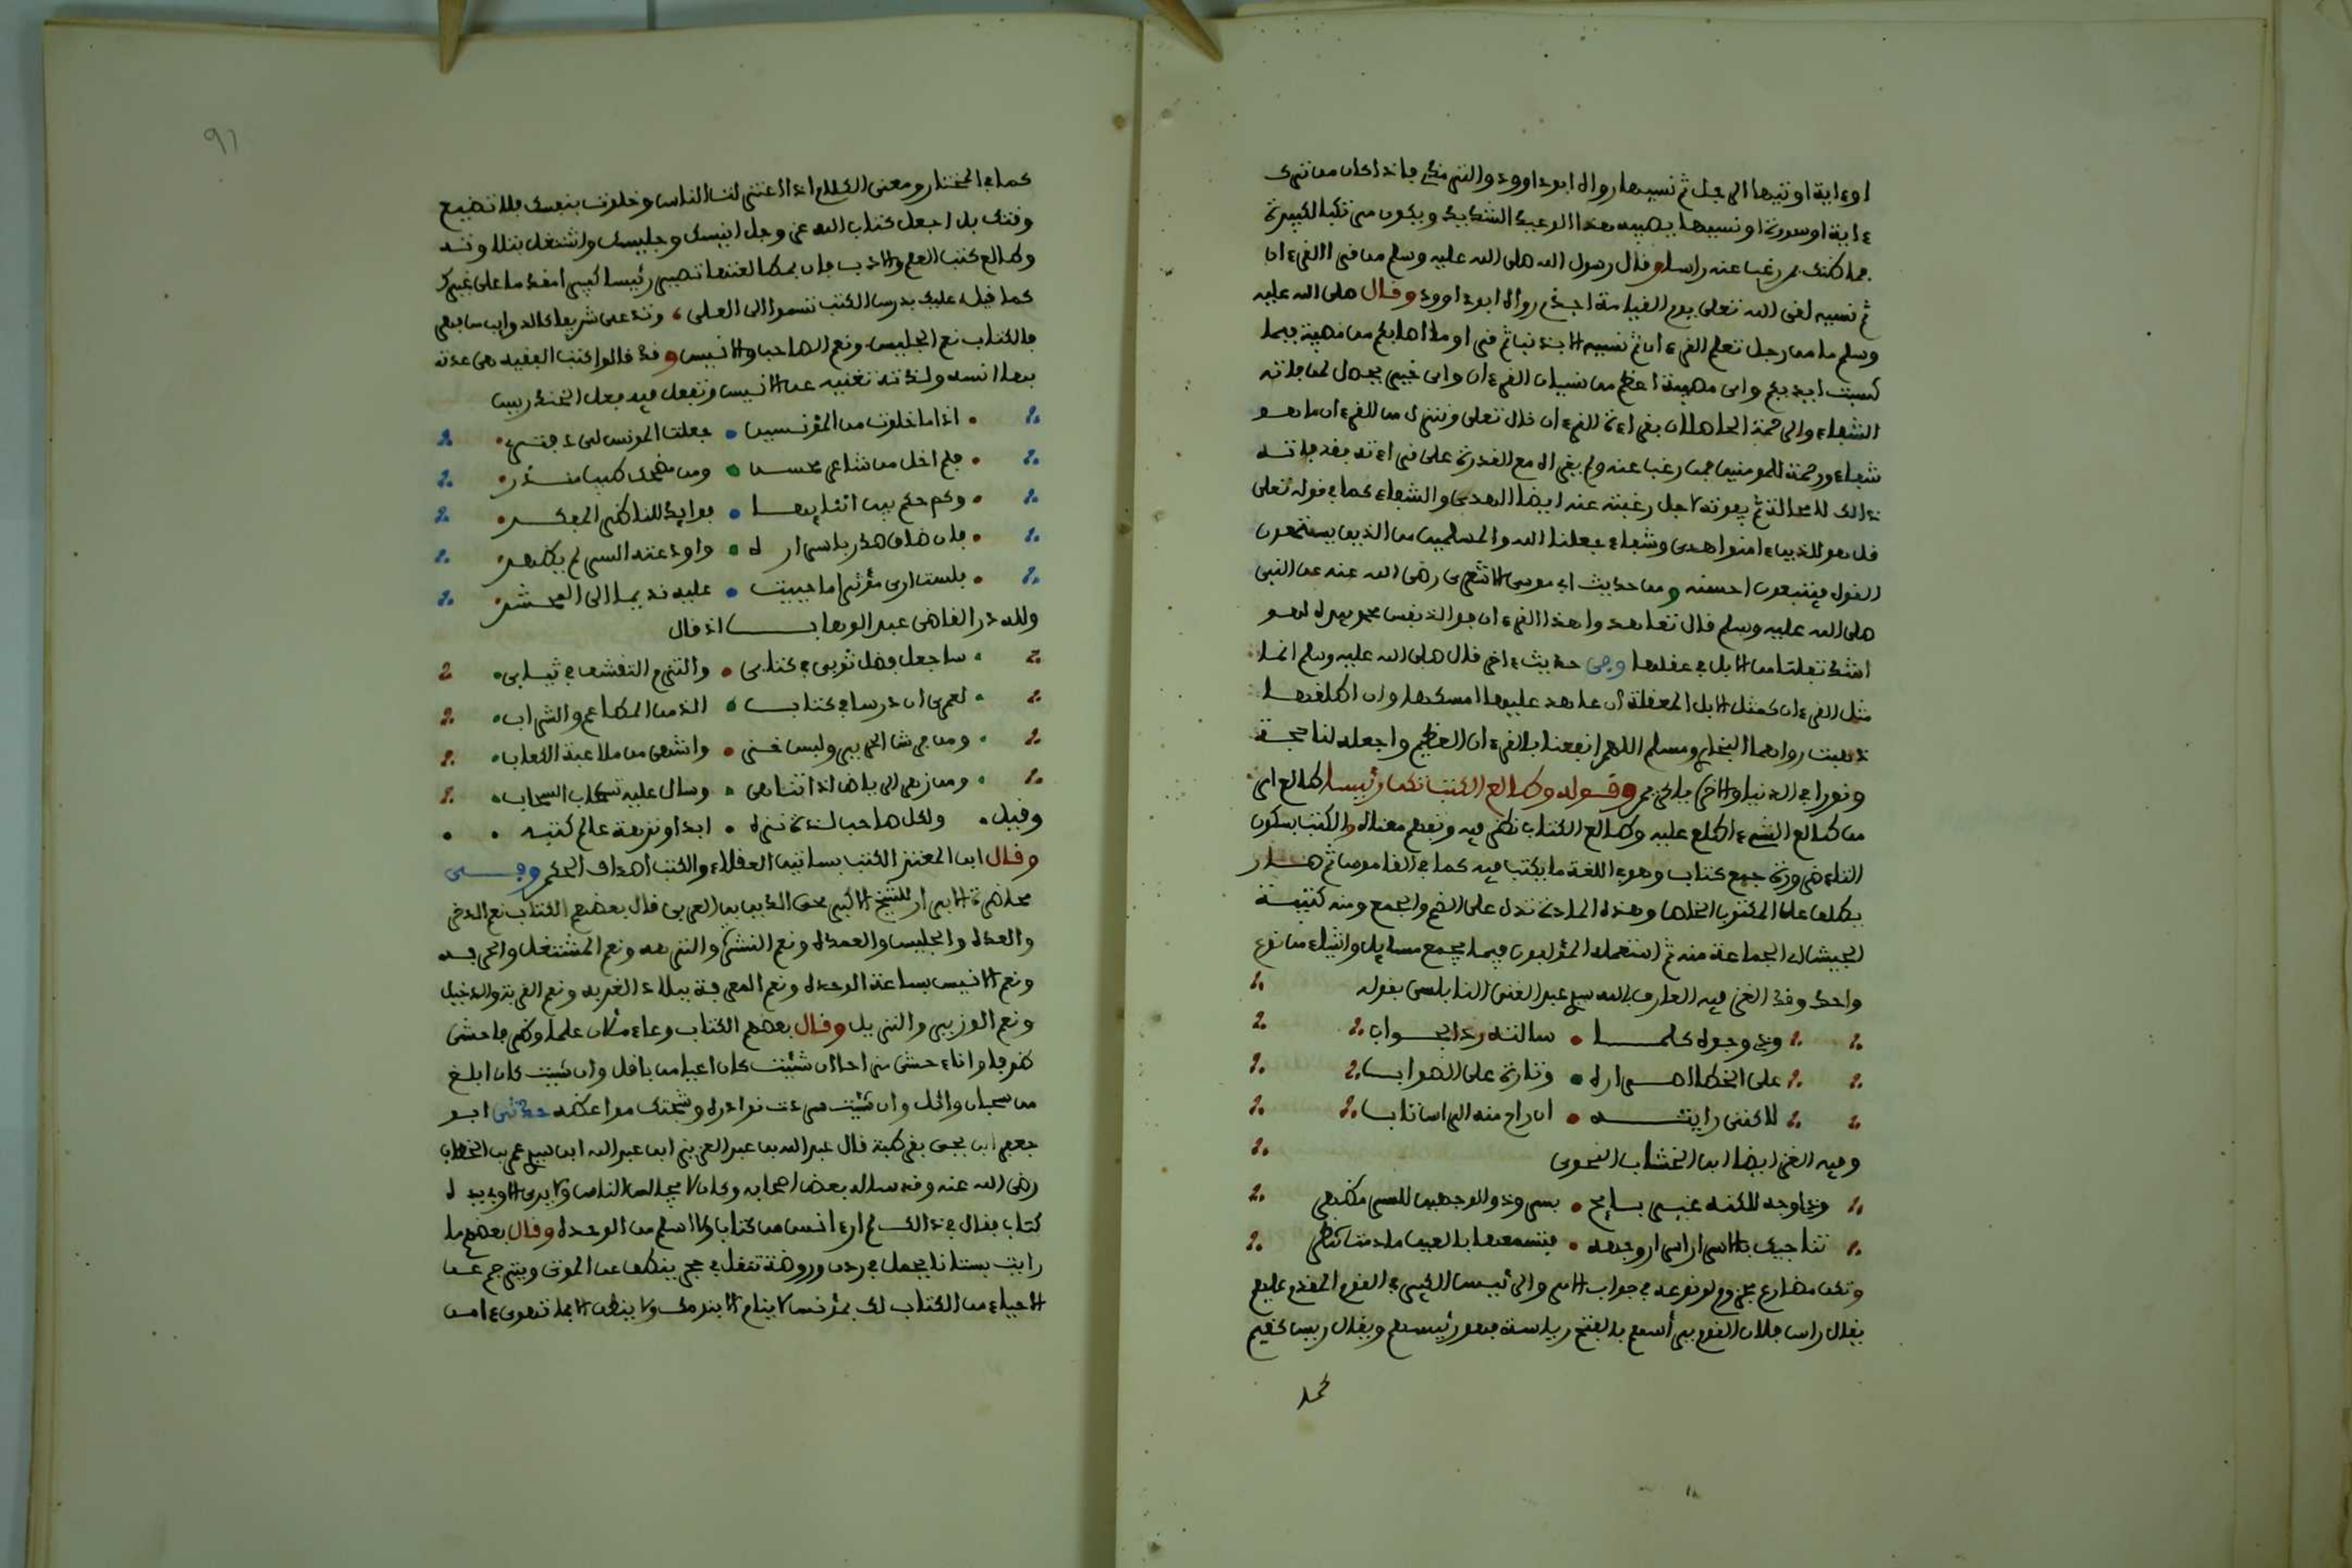 او ءاية اوتيها الرجل ثم نسيها رواه ابو داوود والترمذي فاذا كان من ترك
ءاية او سورة او نسيها يصيبه هذا الوعيد الشديد ويكون مرتكبا لكبيرة
فما ظنك بمن رغب عنه راسا وقال رسول الله صلى الله عليه وسلم من قرا القرءان
ثم نسيه لقى الله تعلى يوم القيامة اجذم رواه ابو داوود وقال صلى الله عليه
وسلم ما من رجل تعلم القرءان ثم نسيه الا بذنب ثم قرا وما اصابكم من مصيبة فبما
كسبت ايديكم واي مصيبة اعظم من نسيان القرءان واي خير يحصل لمن فاته
الشفاء والرحمة الحاصلان بقراءة القرءان قال تعلى وننزل من القرءان ما هو
شفاء ورحمة للمومنين فمن رغب عنه ولم يقراه مع القدرة على قراءته فقد فاته
ذالك لا محالة ثم يفوته لاجل رغبته عنه ايضا الهدى والشفاء كما في قوله تعلى
قل هو للذين ءامنوا هدى وشفاء جعلنا الله والمسلمين من الذين يستمعون
القول فيتبعون احسنه ومن حديث ابي موسى الاشعري رضي الله عنه عن النبي
صلى الله عليه وسلم قال تعاهدوا هذا القرءان فوالذي نفس محمد بيده لهو
اشد تفلتا من الابل في عقلها وفي حديث ءاخر قال صلى الله عليه وسلم انما
مثل القرءان كمثل الابل المعقلة ان عاهد عليها امسكها وان اطلقها
ذهبت رواهما البخاري ومسلم اللهم انفعنا بالقرءان العظيم واجعله لنا حجة
ونورا في الدنيا والاخرة يا رحمن وقوله وطالع الكتب تكن رئيسا طالع امر
من طالع الشيء اطلع عليه وطالع الكتاب نظر فيه وتفهم معناه والكتب بسكون
التاء ضرورة جمع كتاب وهو في اللغة ما يكتب فيه كما في القاموس ثم صار
يطلق على المكتوب ايضا وهذه المادة تدل على الضم والجمع ومنه كتيبة
الجيش اي الجماعة منه ثم استعمله المؤلفون فيما يجمع مسايل واشياء من نوع
واحد وقد الغز فيه العارف بالله سيدي عبد الغني النابلسي بقوله
وذي وجوه كلما • سالته رد الجواب
على الخطا اصراره • وتارة على الصواب
لاكنني رايته • ان راح منه الراس تاب
وفيه الغز ايضا ابن الخشاب النحوي
وذي اوجه لاكنه غير بايح • بسر وذو الوجهين للسر مظهر
تناجيك بالاسرار اسرار وجهه • فتسمعها بالعين ما دمت تنظر
وتكن مضارع مجزوم لوقوعه في جواب الامر والرئيس الكبير في القوم المقدم عليهم
يقال راس فلان القوم يرأسهم بالفتح رياسة فهو رئيسهم ويقال ريس كقيم
كما
91
كما في المختار ومعنى الكلام اذا اعتزلت الناس وخلوت بنفسك فلا تضيع
وقتك بل اجعل كتاب الله عز وجل انيسك وجليسك واشتغل بتلاوته
وطالع كتب العلم والادب فان بمطالعتها تصير رئيسا كبيرا مقدما على غيرك
كما قيل عليك بدرس الكتب تسموا الى العلى، وتدعى شريفا
فالكتاب نعم الجليس ونعم الصاحب والانيس وقد قالوا كتب الفقيه هي عدته
بها انسه ولذته تغنيه عن الانيس وتفعل فيه فعل الخندريس
• اذا ما خلوت من المؤنسين • جعلت المونس لي دفتري
• فلم اخل من شاعر محسن • ومن مضحك طيب منذر
• وكم حكم بين اثنايها • فوايد للناظر المفكر
• فان ضاق صدري باسراره • واودعته السر لم يظهر
• فلست ارى مؤثرا ما حييت • عليه نديما الى المحشر
ولله در القاضي عبد الوهاب اذ قال
• ساجعل فضل ثوبي في كتابي • وارضى التقشف في ثيابي
• لعمري ان درسا في كتاب • الذ من الطعام والشراب
• ومن فرش الحرير ولبس خز • واشهى من ملاعبة الكعاب
• ومن زهر الرياض اذا تناهى • وسال عليه تسكاب السحاب
وقيل • ولكل صاحب لذة نزه • ابدا ونزهة عالم كتبه •
وقال ابن المعتز الكتب بساتين العقلاء والكتب اصداف الحكم وفي
محاضرة الابرار للشيخ الاكبر محي الدين بن العربي قال بعضهم الكتاب نعم الذخر
والعدة والجليس والعمدة ونعم النشرة والنزهة ونعم المشتغل والحرفه
ونعم الانيس ساعة الوحدة ونعم المعرفة ببلاد الغربه ونعم القرين والدخيل
ونعم الوزير والنزيل وقال بعضهم الكتاب وعاء ملئ علما وظرف حشي
ظرفا واناء حشي مزاحا ان شئت كان اعيا من باقل وان شئت كان ابلغ
من سحبان وائل وان شئت سرتك نوادره وشجتك مواعظه حدثني ابو
جعفر ابن يحي بقرطبة قال عبد الله بن عبد العزيز ابن عبد الله ابن سيدي عمر بن الخطاب
رضي الله عنه وقد ساله بعض اصحابه وكان لا يجالس الناس ولا يرى الا وبيده
كتاب فقال في ذالك لم ار ءانس من كتاب ولا اسلم من الوحدة وقال بعضهم ما
رايت بستانا يحمل في ردن وروضة تنقل في حجر ينطق عن الموتى ويترجم عن
الاحياء من الكتاب لك بمؤنس لا ينام الا بنومك ولا ينطق الا بما تهوى ءامن